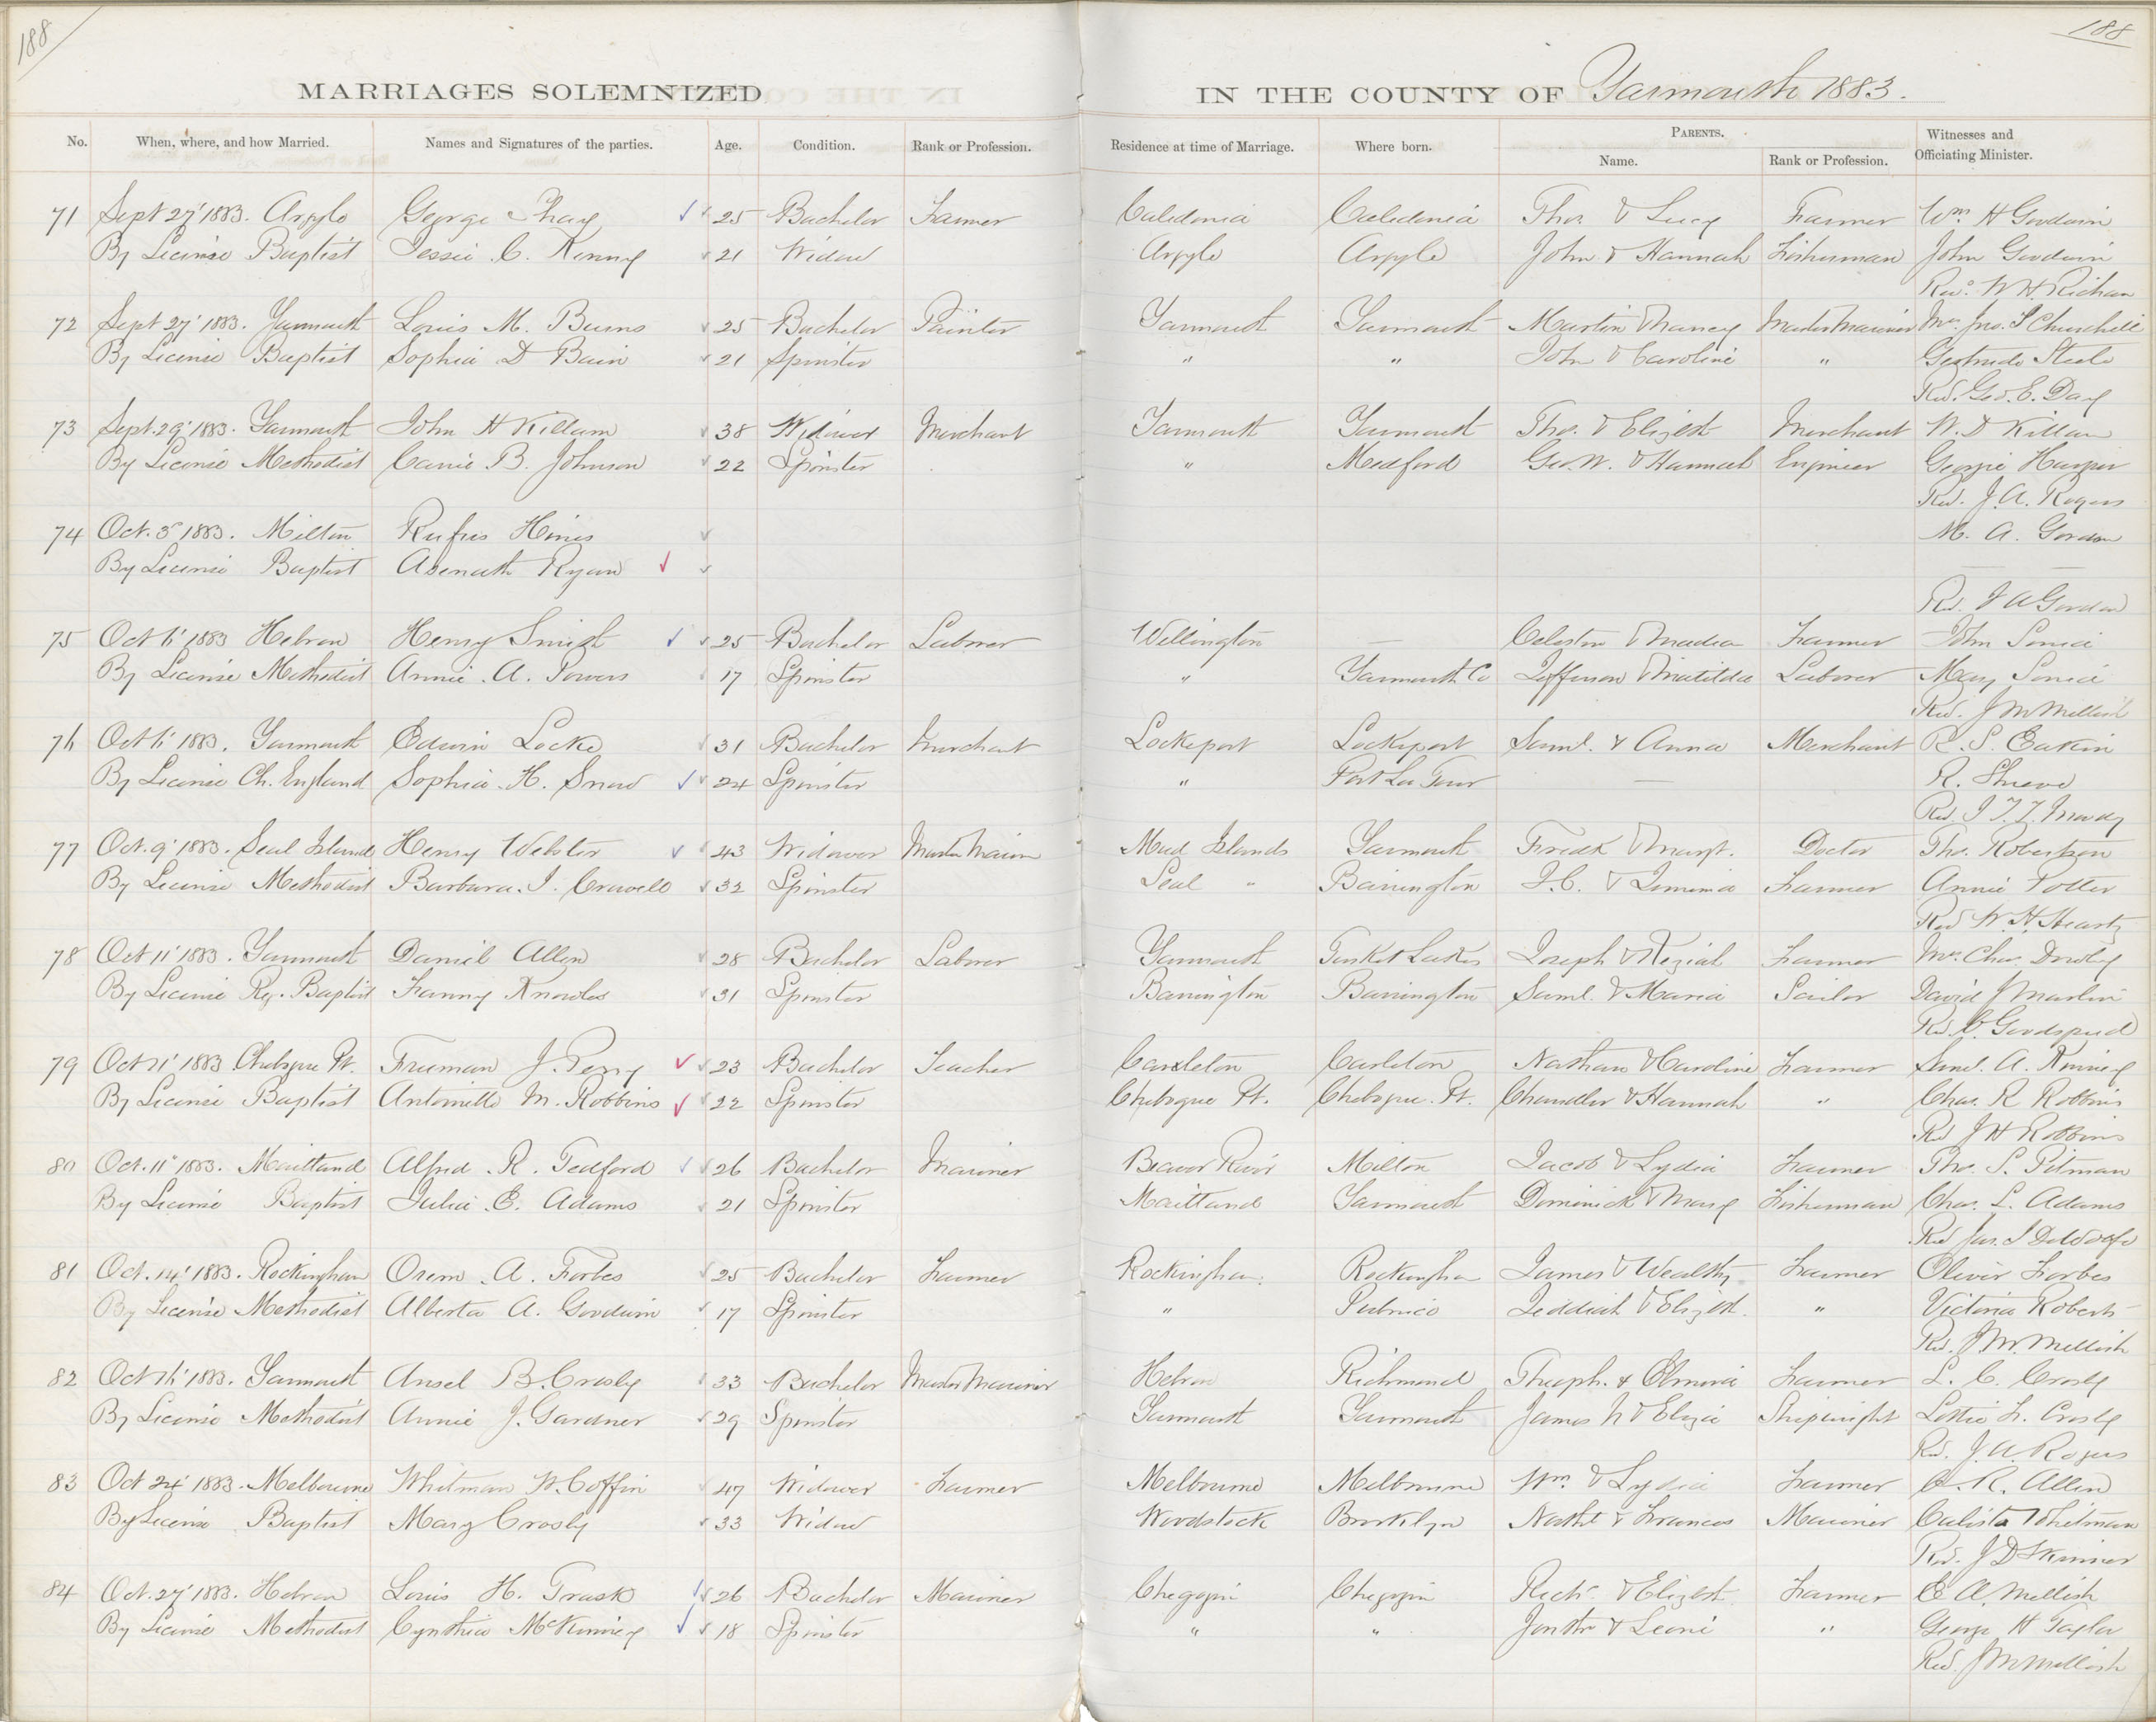 188
188
MARRIAGES SOLEMNIZED IN THE COUNTY OF Yarmouth 1883.
No. When, where, and how Married. Names and Signatures of the parties. Age. Condition. Rank or Profession. Residence at time of Marriage. Where born. PARENTS. Name. Rank or Profession. Witnesses and Officiating Minister.
71 Sept 27' 1883. Argyle George 25 Bachelor Farmer Caledonia Caledonia Thos. & Lucy Farmer Wm H Goodwin
By License Baptist Jessie C. Kenny 21 Widow Argyle Argyle John & Hannah Fisherman John Goodwin
Revd. W H Richan
72 Sept 27' 1883. Yarmouth Louis M. Burns 25 Bachelor Painter Yarmouth Yarmouth Martin & Nancy Master Mariner Mrs. Jno. S Churchill
By License Baptist Sophia D Bain 21 Spinster " " John & Caroline " Gertrude Steele
Rev. Geo. E. Day
73 Sept. 29' 1883. Yarmouth John H Killam 38 Widower Merchant Yarmouth Yarmouth Thos. & Elizbth Merchant W. D Killam
By License Methodist Carrie B. Johnson 22 Spinster " Medford Geo. W. & Hannah Engineer Georgie Harper
Rev. J. A. Rogers
74 Oct. 3' 1883. Milton Rufus Hines M. A. Gordon
By License Baptist Asenath Ryan — —
Rev. J A Gordon
75 Oct 6' 1883 Hebron Henry Smith 25 Bachelor Laborer Wellington — Celestin & Farmer John
By License Methodist Annie A. Powers 17 Spinster " Yarmouth Co Jefferson & Matilda Laborer Mary
Rev. J M Mellish
76 Oct 6' 1883. Yarmouth Edwin Locke 31 Bachelor Merchant Lockeport Lockeport Saml. & Anna Merchant R. S. Eakin
By License Ch. England Sophia H. Snow 24 Spinster " Port La Tour — R. Shreve
Rev. J. T. T. Moody
77 Oct. 9' 1883. Seal Island Henry Webster 43 Widower Master Marinr Mud Islands Yarmouth Fredk & Margt. Doctor Thos. Robertson
By License Methodist Barbara J. Crowell 32 Spinster Seal " Barrington J. C. & Jemima Farmer Annie Potter
Rev W. H. Heartz
78 Oct 11' 1883. Yarmouth Daniel Allen 28 Bachelor Laborer Yarmouth Tusket Lakes Joseph & Keziah Farmer Mrs. Chas.
By License Rg. Baptist Fanny Knowles 31 Spinster Barrington Barrington Saml. & Maria Sailor David J
Rev C Goodspeed
79 Oct 11' 1883 Chebogue Pt. Freeman J. Perry 23 Bachelor Teacher Carleton Carleton Nathan & Caroline Farmer Saml. A. Kinney
By License Baptist Antoinette M. Robbins 22 Spinster Chebogue Pt. Chebogue Pt. Chandler & Hannah " Chas. R Robbins
Rev J H Robbins
80 Oct. 11' 1883. Maitland Alfred R. Tedford 26 Bachelor Mariner Beaver River Milton Jacob & Lydia Farmer Thos. S. Pitman
By License Baptist Julia E. Adams 21 Spinster Maitland Yarmouth Dominick & Mary Fisherman Chas. L. Adams
Rev Jas. I DeWolfe
81 Oct. 14' 1883. Rockingham Orem A. Forbes 25 Bachelor Farmer Rockingham Rockingham James & Wealthy Farmer Oliver Forbes
By License Methodist Alberta A. Goodwin 17 Spinster " Pubnico Jeddiah & Elizbth. " Victoria Roberts
Rev. J. M. Mellish
82 Oct 16' 1883. Yarmouth Ansel B. Crosby 33 Bachelor Master Mariner Hebron Richmond Theoph. & Elmira Farmer L. C. Crosby
By License Methodist Annie J. Gardner 29 Spinster Yarmouth Yarmouth James N & Eliza Shipwright Lottie L. Crosby
Rev. J. A. Rogers
83 Oct 24' 1883. Melbourne Whitman W. Coffin 47 Widower Farmer Melbourne Melbourne Wm. & Lydia Farmer C. R. Allen
By License Baptist Mary Crosby 33 Widow Woodstock Brooklyn Nathl & Frances Mariner Calista Whitman
Rev. J D Skinner
84 Oct. 27' 1883. Hebron Louis H. Trask 26 Bachelor Mariner Chegogin Chegogin Richd & Elizbth. Farmer E A. Mellish
By License Methodist Cynthia McKinney 18 Spinster " " Jonthn & Leoni " George H Taylor
Rev. J M Mellish